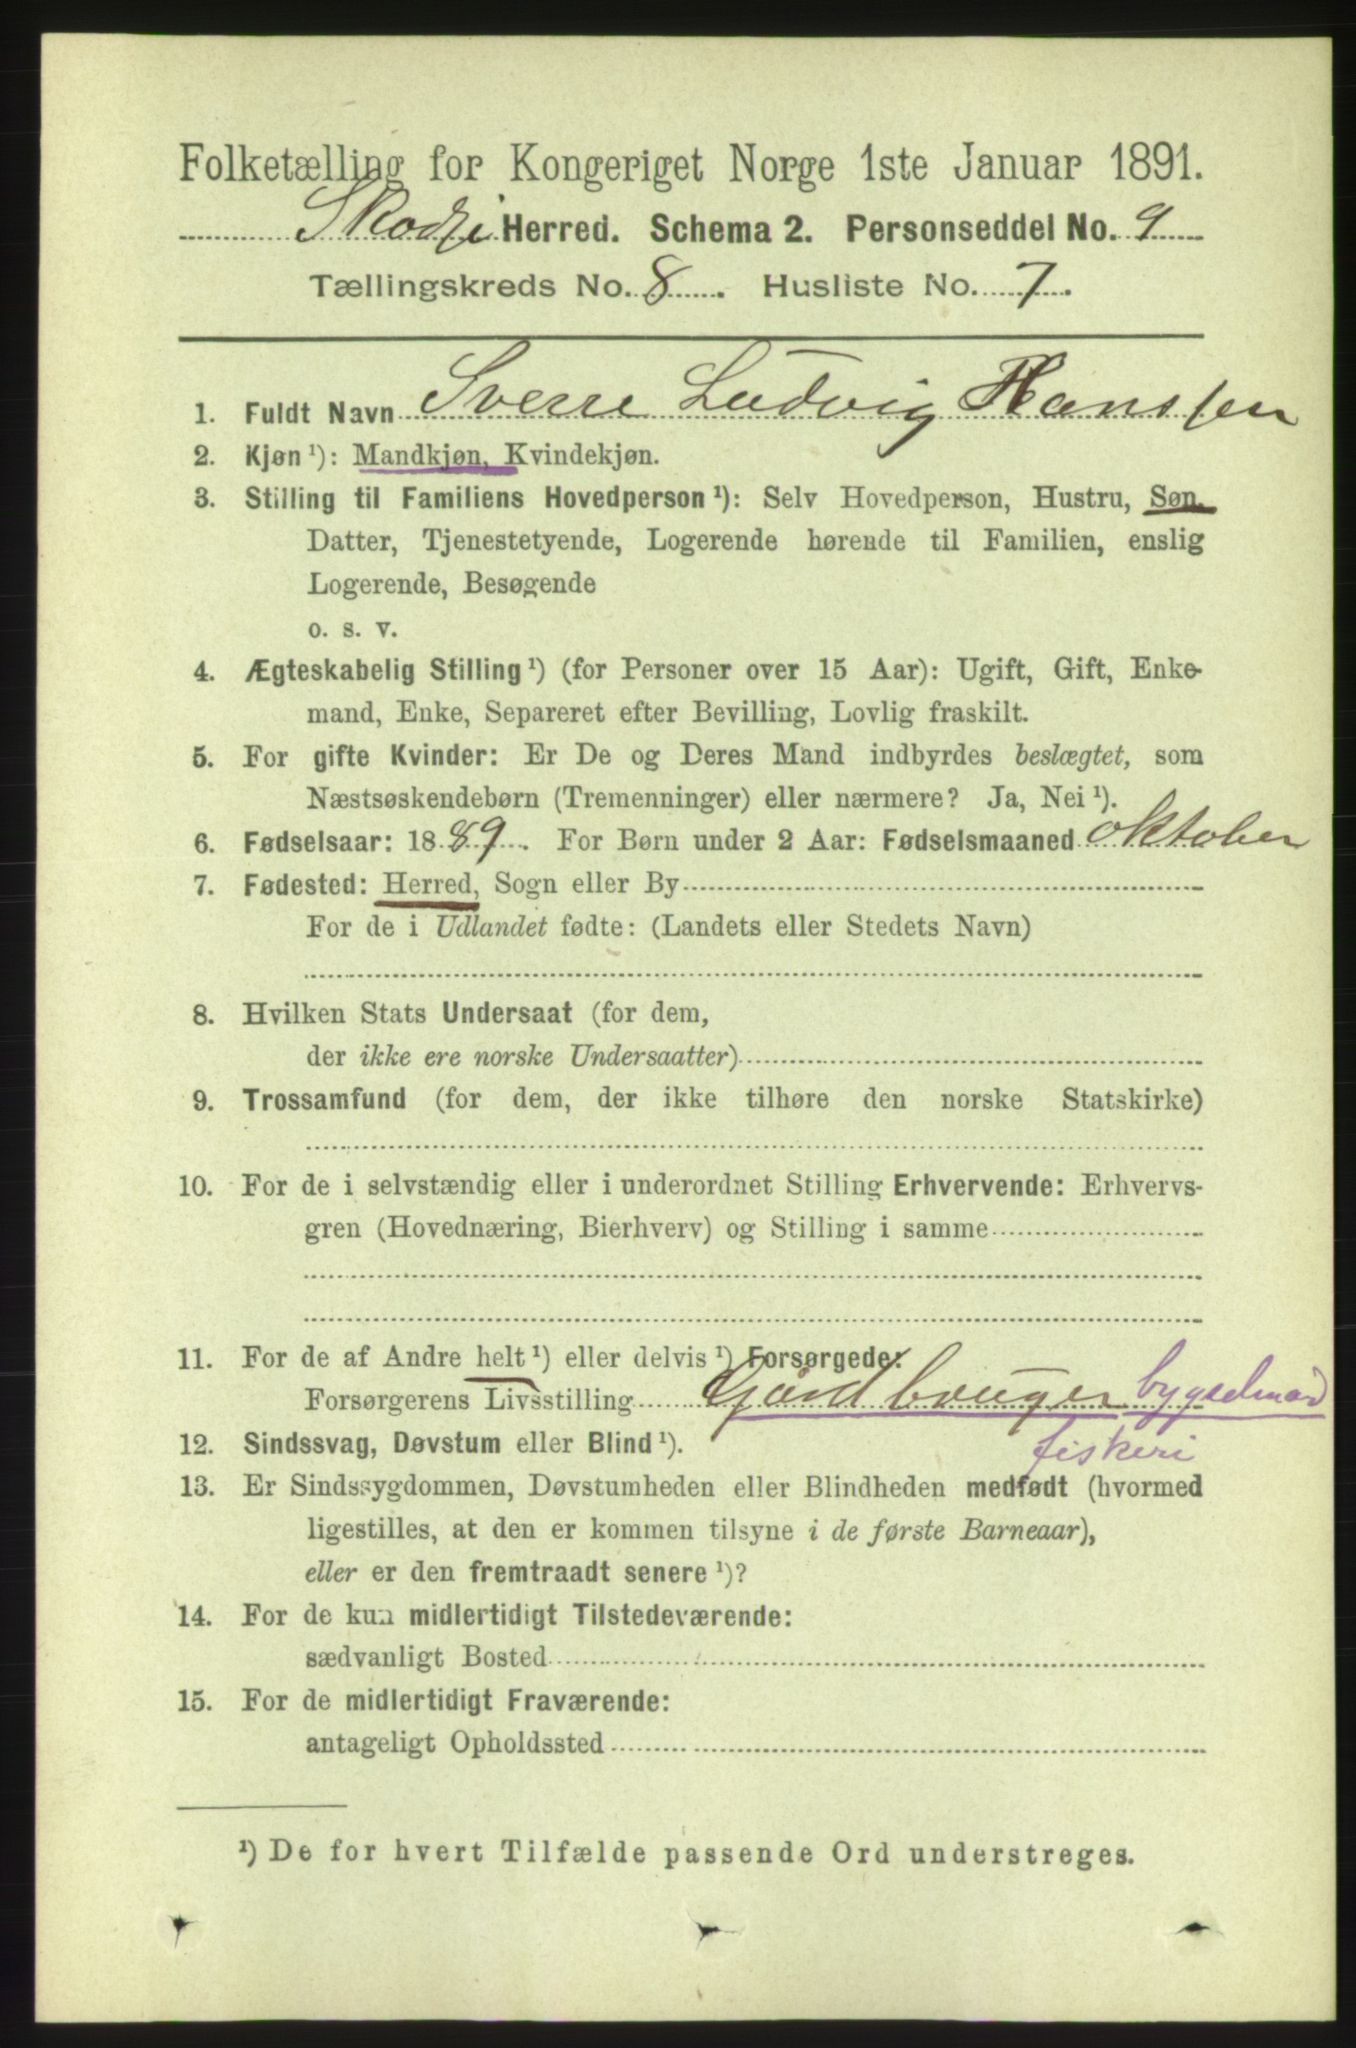 Folketælling for Kongeriget Norge 1ste Januar 1891.
Skodje Herred. Schema 2. Personseddel No. 9
Tællingskreds No. 8. Husliste No. 7.
1. Fuldt Navn Sverre Ludvig Hanssen
2. Kjøn ¹): Mandkjøn, Kvindekjøn.
3. Stilling til Familiens Hovedperson ¹): Selv Hovedperson, Hustru, Søn,
Datter, Tjenestetyende, Logerende hørende til Familien, enslig
Logerende, Besøgende
o. s. v.
4. Ægteskabelig Stilling ¹) (for Personer over 15 Aar): Ugift, Gift, Enke-
mand, Enke, Separeret efter Bevilling, Lovlig fraskilt.
5. For gifte Kvinder: Er De og Deres Mand indbyrdes beslægtet, som
Næstsøskendebørn (Tremenninger) eller nærmere? Ja, Nei ¹).
6. Fødselsaar: 1889. For Børn under 2 Aar: Fødselsmaaned oktober
7. Fødested: Herred, Sogn eller By
For de i Udlandet fødte: (Landets eller Stedets Navn)
8. Hvilken Stats Undersaat (for dem,
der ikke ere norske Undersaatter)
9. Trossamfund (for dem, der ikke tilhøre den norske Statskirke)
10. For de i selvstændig eller i underordnet Stilling Erhvervende: Erhvervs-
gren (Hovednæring, Bierhverv) og Stilling i samme
11. For de af Andre helt ¹) eller delvis ¹) Forsørgede:
Forsørgerens Livsstilling Gårdbruger bygselmand
fiskeri
12. Sindssvag, Døvstum eller Blind ¹).
13. Er Sindssygdommen, Døvstumheden eller Blindheden medfødt (hvormed
ligestilles, at den er kommen tilsyne i de første Barneaar),
eller er den fremtraadt senere ¹)?
14. For de kun midlertidigt Tilstedeværende:
sædvanligt Bosted
15. For de midlertidigt Fraværende:
antageligt Opholdssted
¹) De for hvert Tilfælde passende Ord understreges.